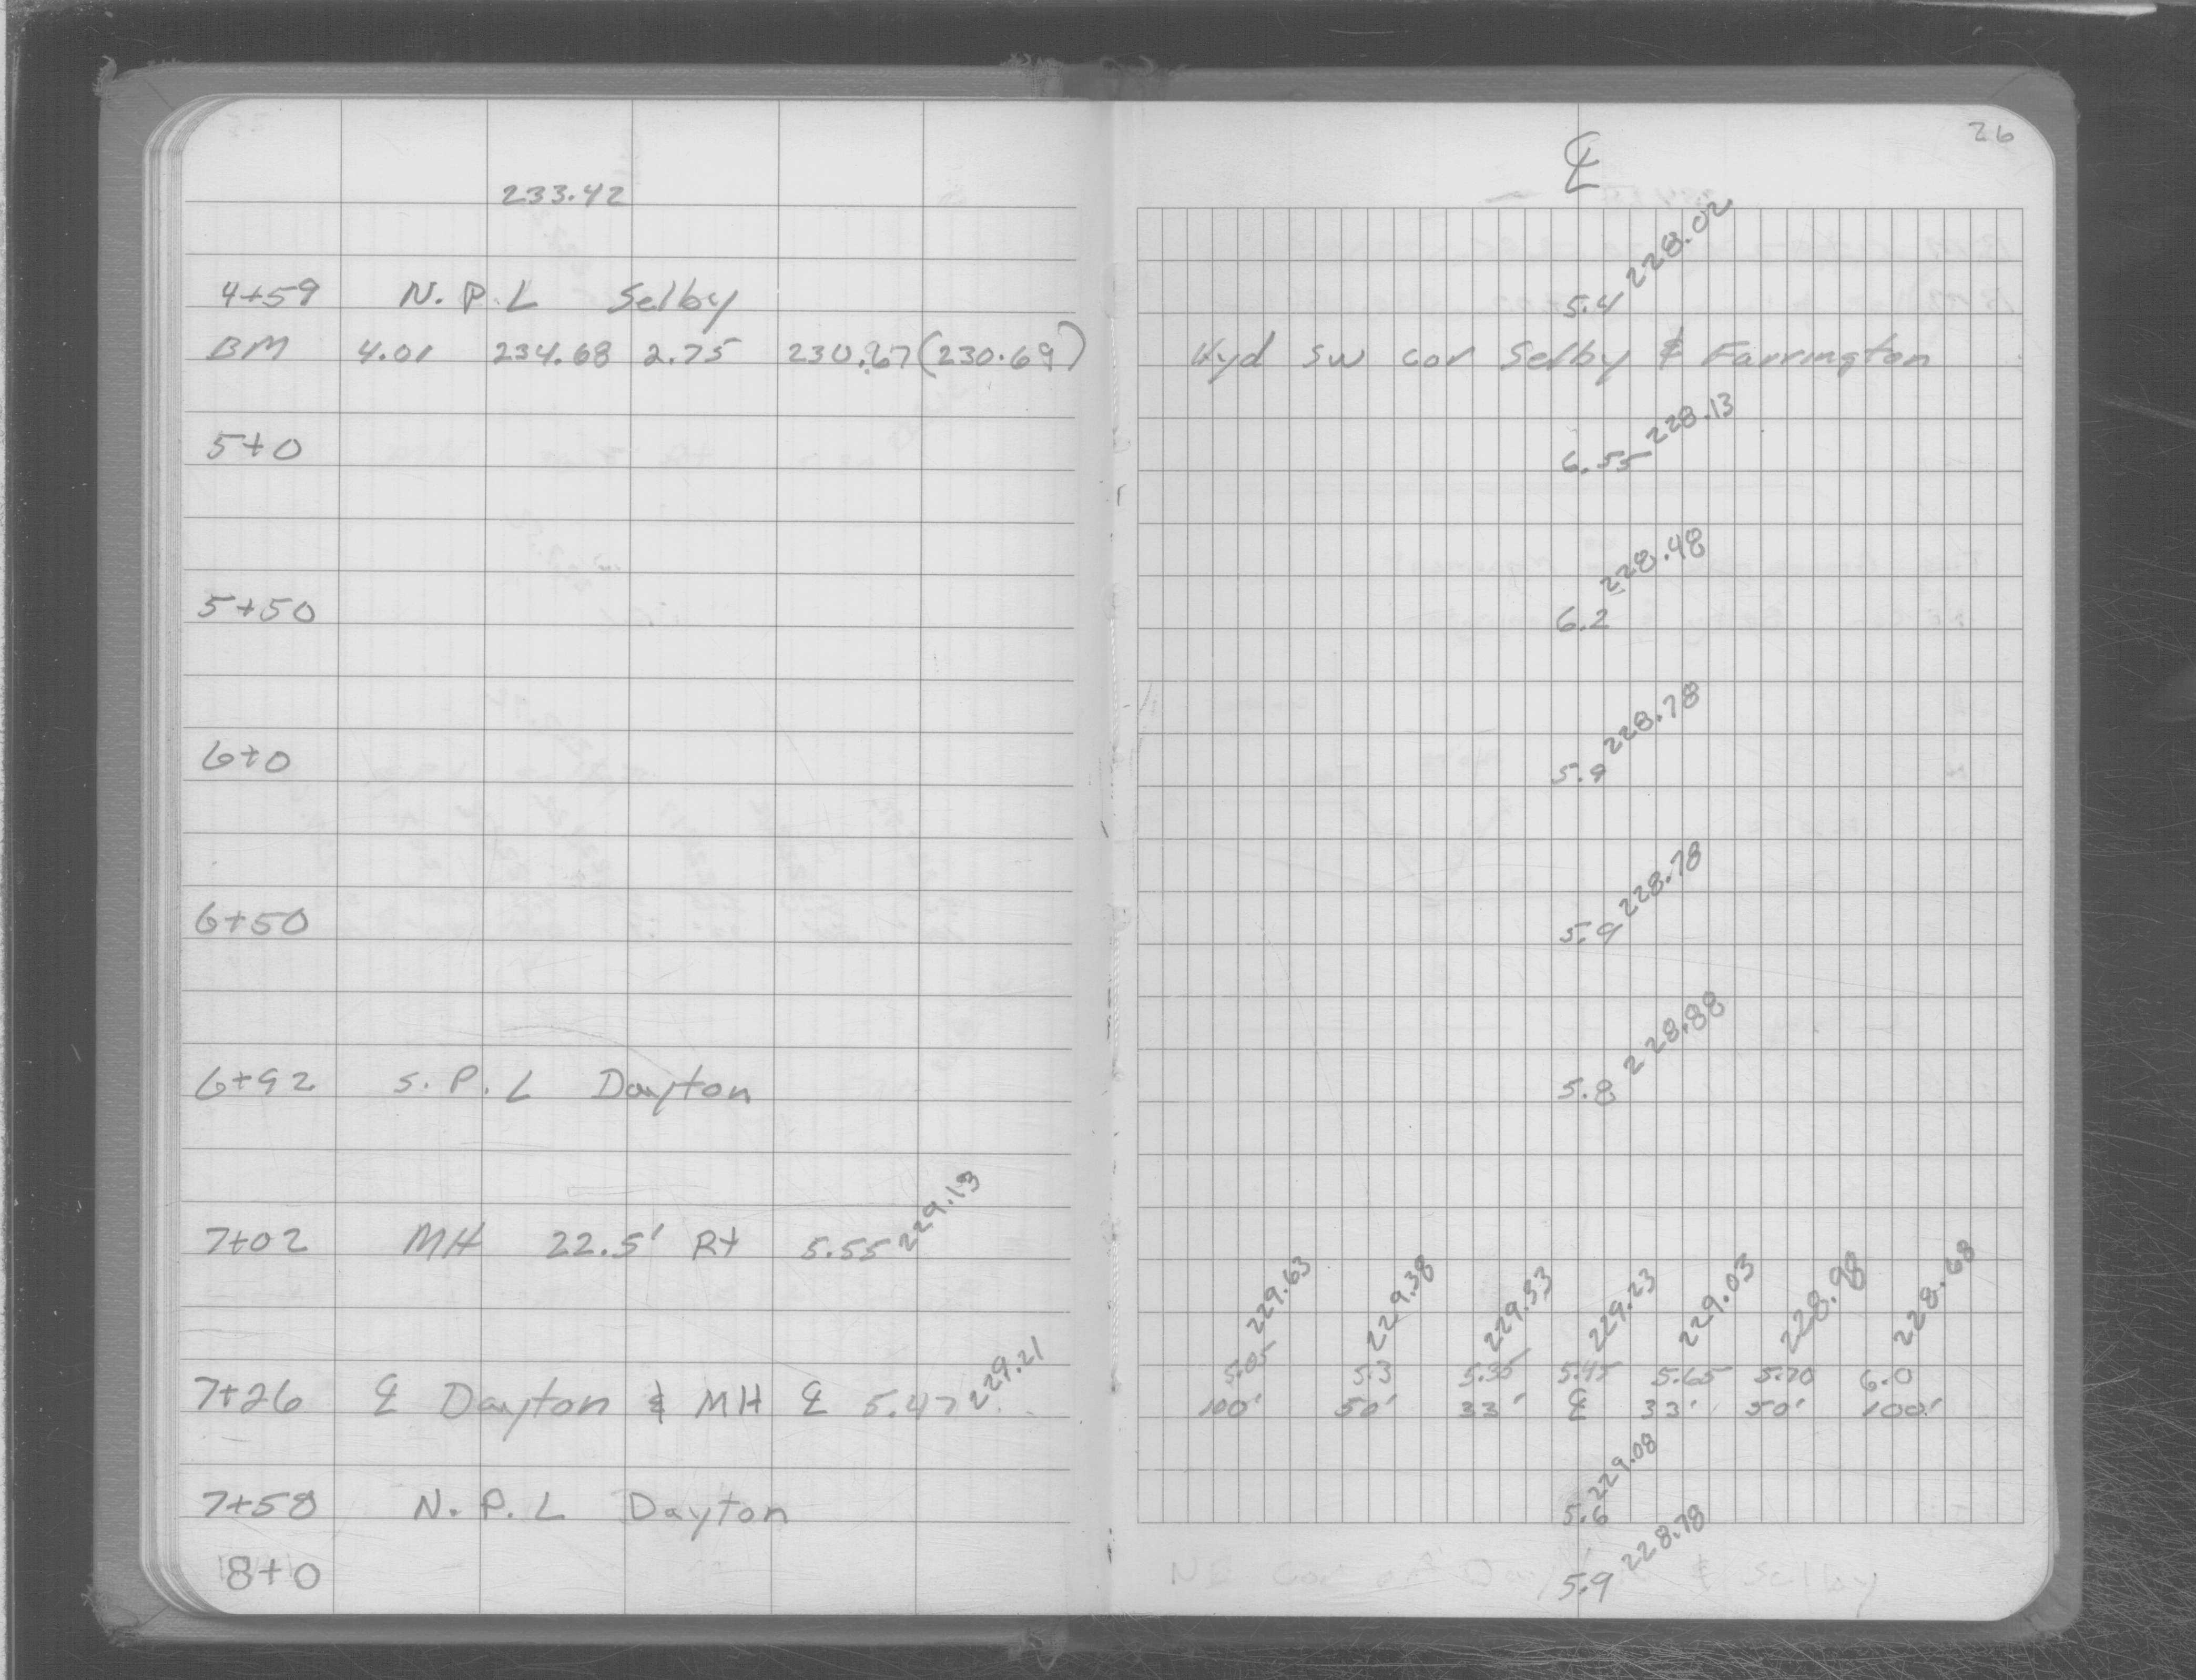 26
233.42 ℄
4+59 N.P.L Selby 5.4 228.02
BM 4.01 234.68 2.75 230.67 (230.69) Hyd SW cor Selby & Farrington
5+0 6.55 228.13
5+50 6.2 228.48
6+0 5.9 228.78
6+50 5.9 228.78
6+92 S.P.L Dayton 5.8 228.88
7+02 MH 22.5' Rt 5.55 229.13
229.63 229.38 229.33 229.23 229.03 228.98 228.68
5.05 5.3 5.35 5.45 5.65 5.70 6.0
7+26 ℄ Dayton & MH ℄ 5.47 229.21 100' 50' 33' ℄ 33' 50' 100'
7+58 N.P.L Dayton 5.6 229.08
8+0 5.9 228.78